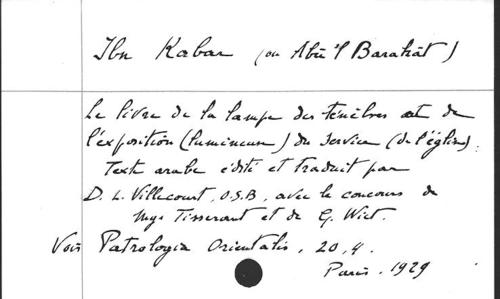 Ibn Kabar (ou Abū'l Barakāt)
Le livre de la lampe des ténèbres et de
l'exposition (lumineuse) du service (de l'église).
Texte arabe édité et traduit par
D. L. Villecourt, O.S.B, avec le concours de
Mgr Tisserant et de G. Wiet.
Voir Patrologia Orientalis, 20, 4.
Paris. 1929